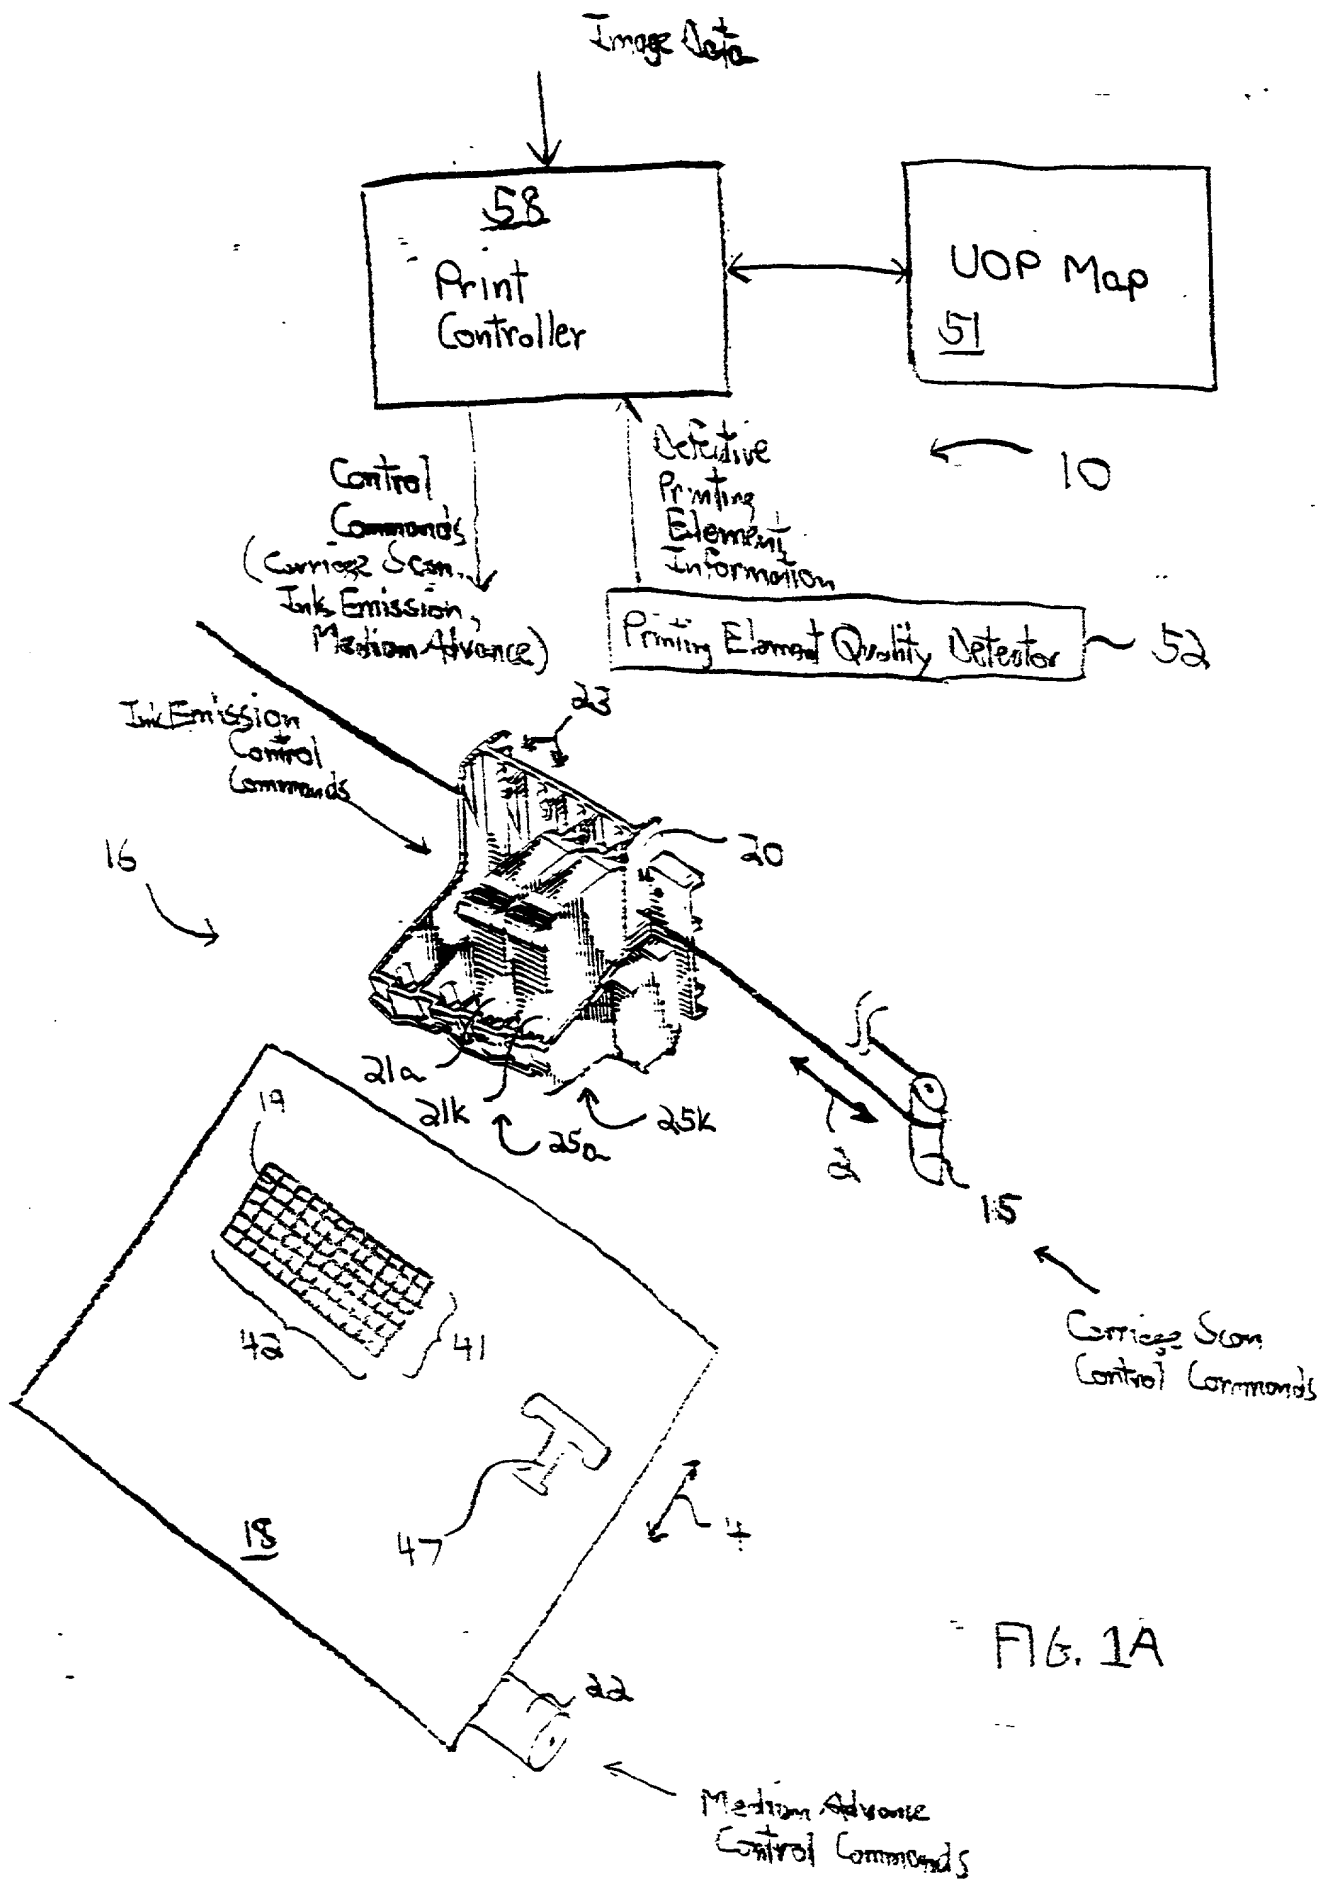 Image Data
58
Print
Controller
UOP Map
51
10
Control
Commands
(Carriage Scan,
Ink Emission,
Medium Advance)
Defective
Printing
Element
Information
Printing Element Quality Detector
52
Ink Emission
Control
Commands
23
20
16
21a
21k
25a
25k
2
15
19
42
41
Carriage Scan
Control Commands
47
4
18
22
FIG. 1A
Medium Advance
Control Commands